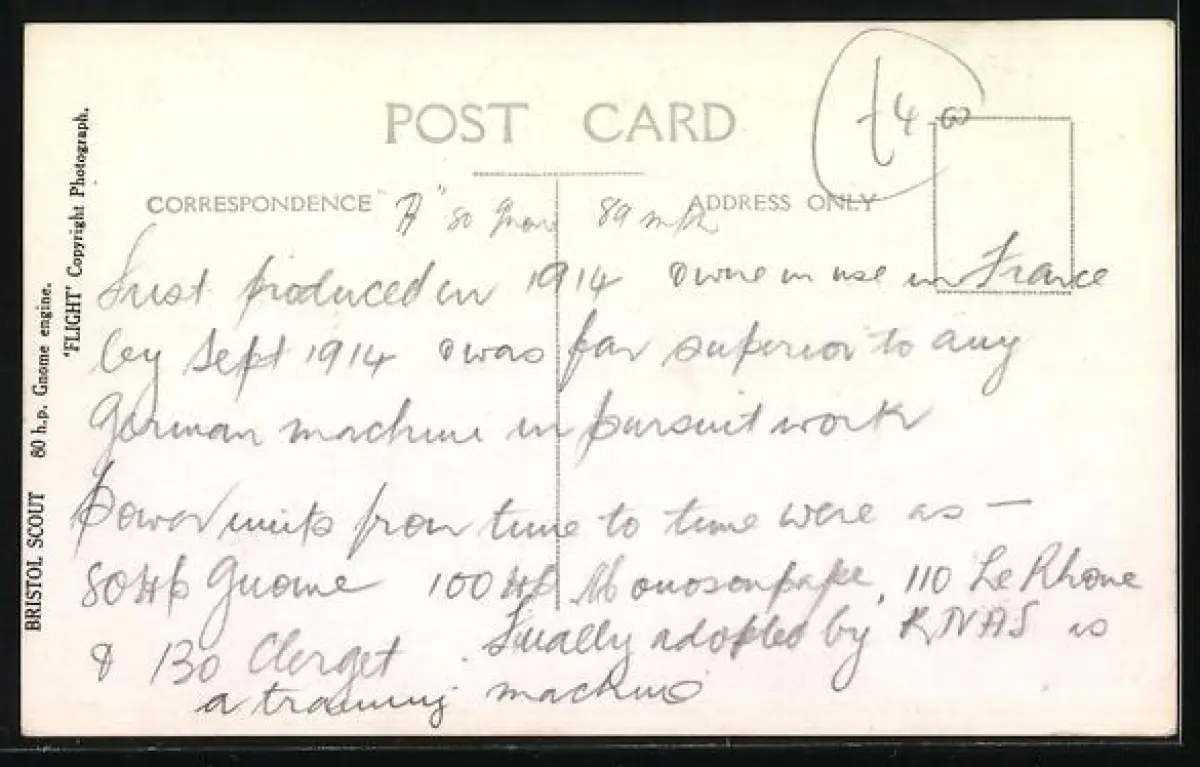 POST CARD
£4.00
CORRESPONDENCE
ADDRESS ONLY
"B" 80 Gnome 89 mph
First produced in 1914 & were in use in France
by Sept 1914 & was far superior to any
German machine in pursuit work
Power units from time to time were as —
80 HP Gnome 100 HP Monosoupape, 110 Le Rhone
& 130 Clerget. Finally adopted by RNAS as
a training machine
BRISTOL SCOUT 80 h.p. Gnome engine.
'FLIGHT' Copyright Photograph.